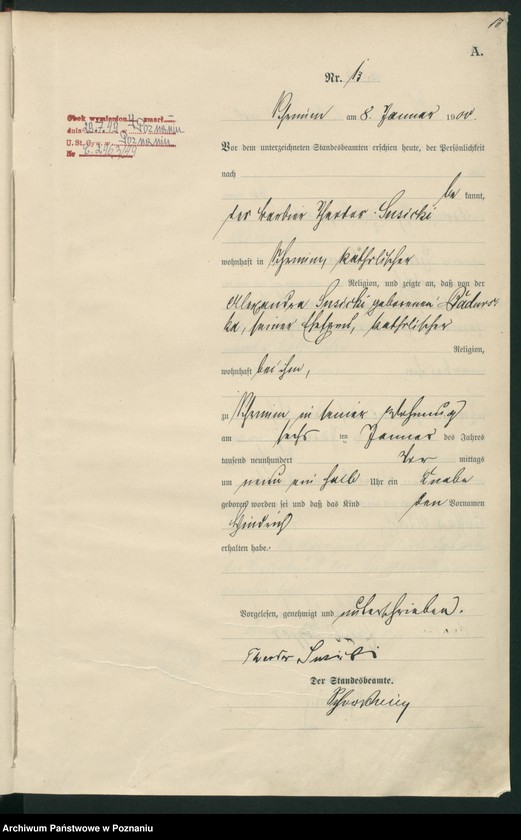 A.
Nr. 13
Schrimm am 8. Januar 1900.
Obok wymieniony zmarł
dnia 29.7.49 Poznaniu
U. St. Cyw. w Poznaniu
Nr 2463/49
Vor dem unterzeichneten Standesbeamten erschien heute, der Persönlichkeit
nach
be kannt,
der Barbier Theodor Susicki
wohnhaft in Schrimm, katholischer
Religion, und zeigte an, daß von der
Alexandra Susicki geborenen
ka, seiner Ehefrau, katholischer
Religion,
wohnhaft bei ihm,
zu Schrimm in seiner Wohnung
am sechs ten Januar des Jahres
tausend neunhundert Vor mittags
um neun ein halb Uhr ein Knabe
geboren worden sei und daß das Kind den Vornamen
erhalten habe.
Vorgelesen, genehmigt und unterschrieben.
Theodor Susicki
Der Standesbeamte.
Archiwum Państwowe w Poznaniu